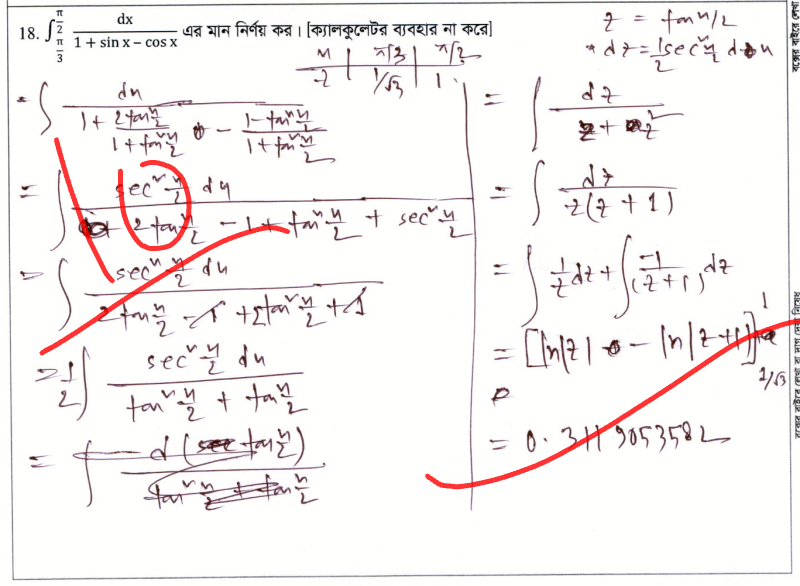 18. ∫_{π/3}^{π/2} dx / (1 + sin x – cos x) এর মান নির্ণয় কর। [ক্যালকুলেটর ব্যবহার না করে]
z = tan x/2
dz = 1/2 sec² x/2 dx
x | π/3 | π/2
z | 1/√3 | 1
= ∫ dx / (1 + (2tan x/2)/(1 + tan² x/2) - (1 - tan² x/2)/(1 + tan² x/2))
= ∫ sec² x/2 dx / (2tan x/2 - 1 + tan² x/2 + sec² x/2)
= ∫ sec² x/2 dx / (2tan x/2 - 1 + 2tan² x/2 + 1)
= 1/2 ∫ sec² x/2 dx / (tan² x/2 + tan x/2)
= ∫ d(tan x/2) / (tan² x/2 + tan x/2)
= ∫ dz / (z + z²)
= ∫ dz / z(z + 1)
= ∫ 1/z dz + ∫ -1/(z + 1) dz
= [ln|z| - ln|z+1|]_{1/√3}^{1}
= 0.3119053582